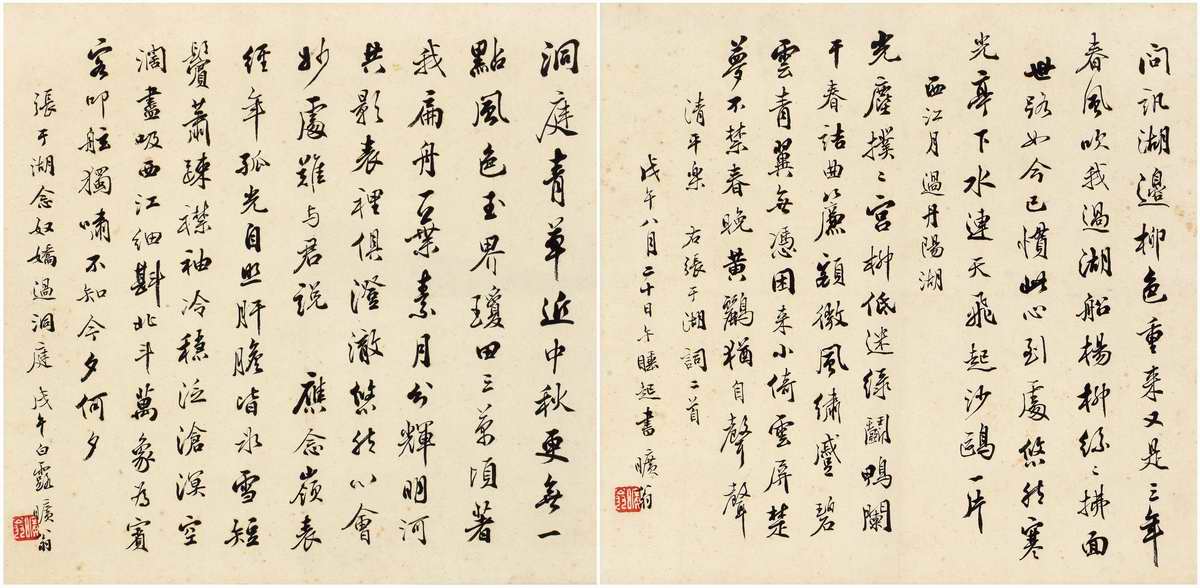 問訊湖邊柳色重來又是三年
春風吹我過湖船楊柳絲〻拂面
世路如今已慣此心到處悠然寒
光亭下水連天飛起沙鷗一片
西江月過丹陽湖
光塵撲〻宮柳低迷綠鬪鴨闌
干春詰曲簾額微風繡蹙碧
雲青翼無憑困來小倚雲屏楚
夢不禁春晚黃鸝猶自聲聲
清平樂 右張于湖詞二首
戊午八月二十日午睡起書 曠翁
洞庭青草近中秋更無一
點風色玉界瓊田三萬頃著
我扁舟一葉素月分輝明河
共影表裡俱澄澈悠然心會
妙處難与君說 應念嶺表
經年孤光自照肝膽皆冰雪短
鬢蕭疎襟袖冷穩泛滄溟空
濶盡吸西江細斟北斗萬象為賓
客叩舷獨嘯不知今夕何夕
張于湖念奴嬌過洞庭 戊午白露曠翁